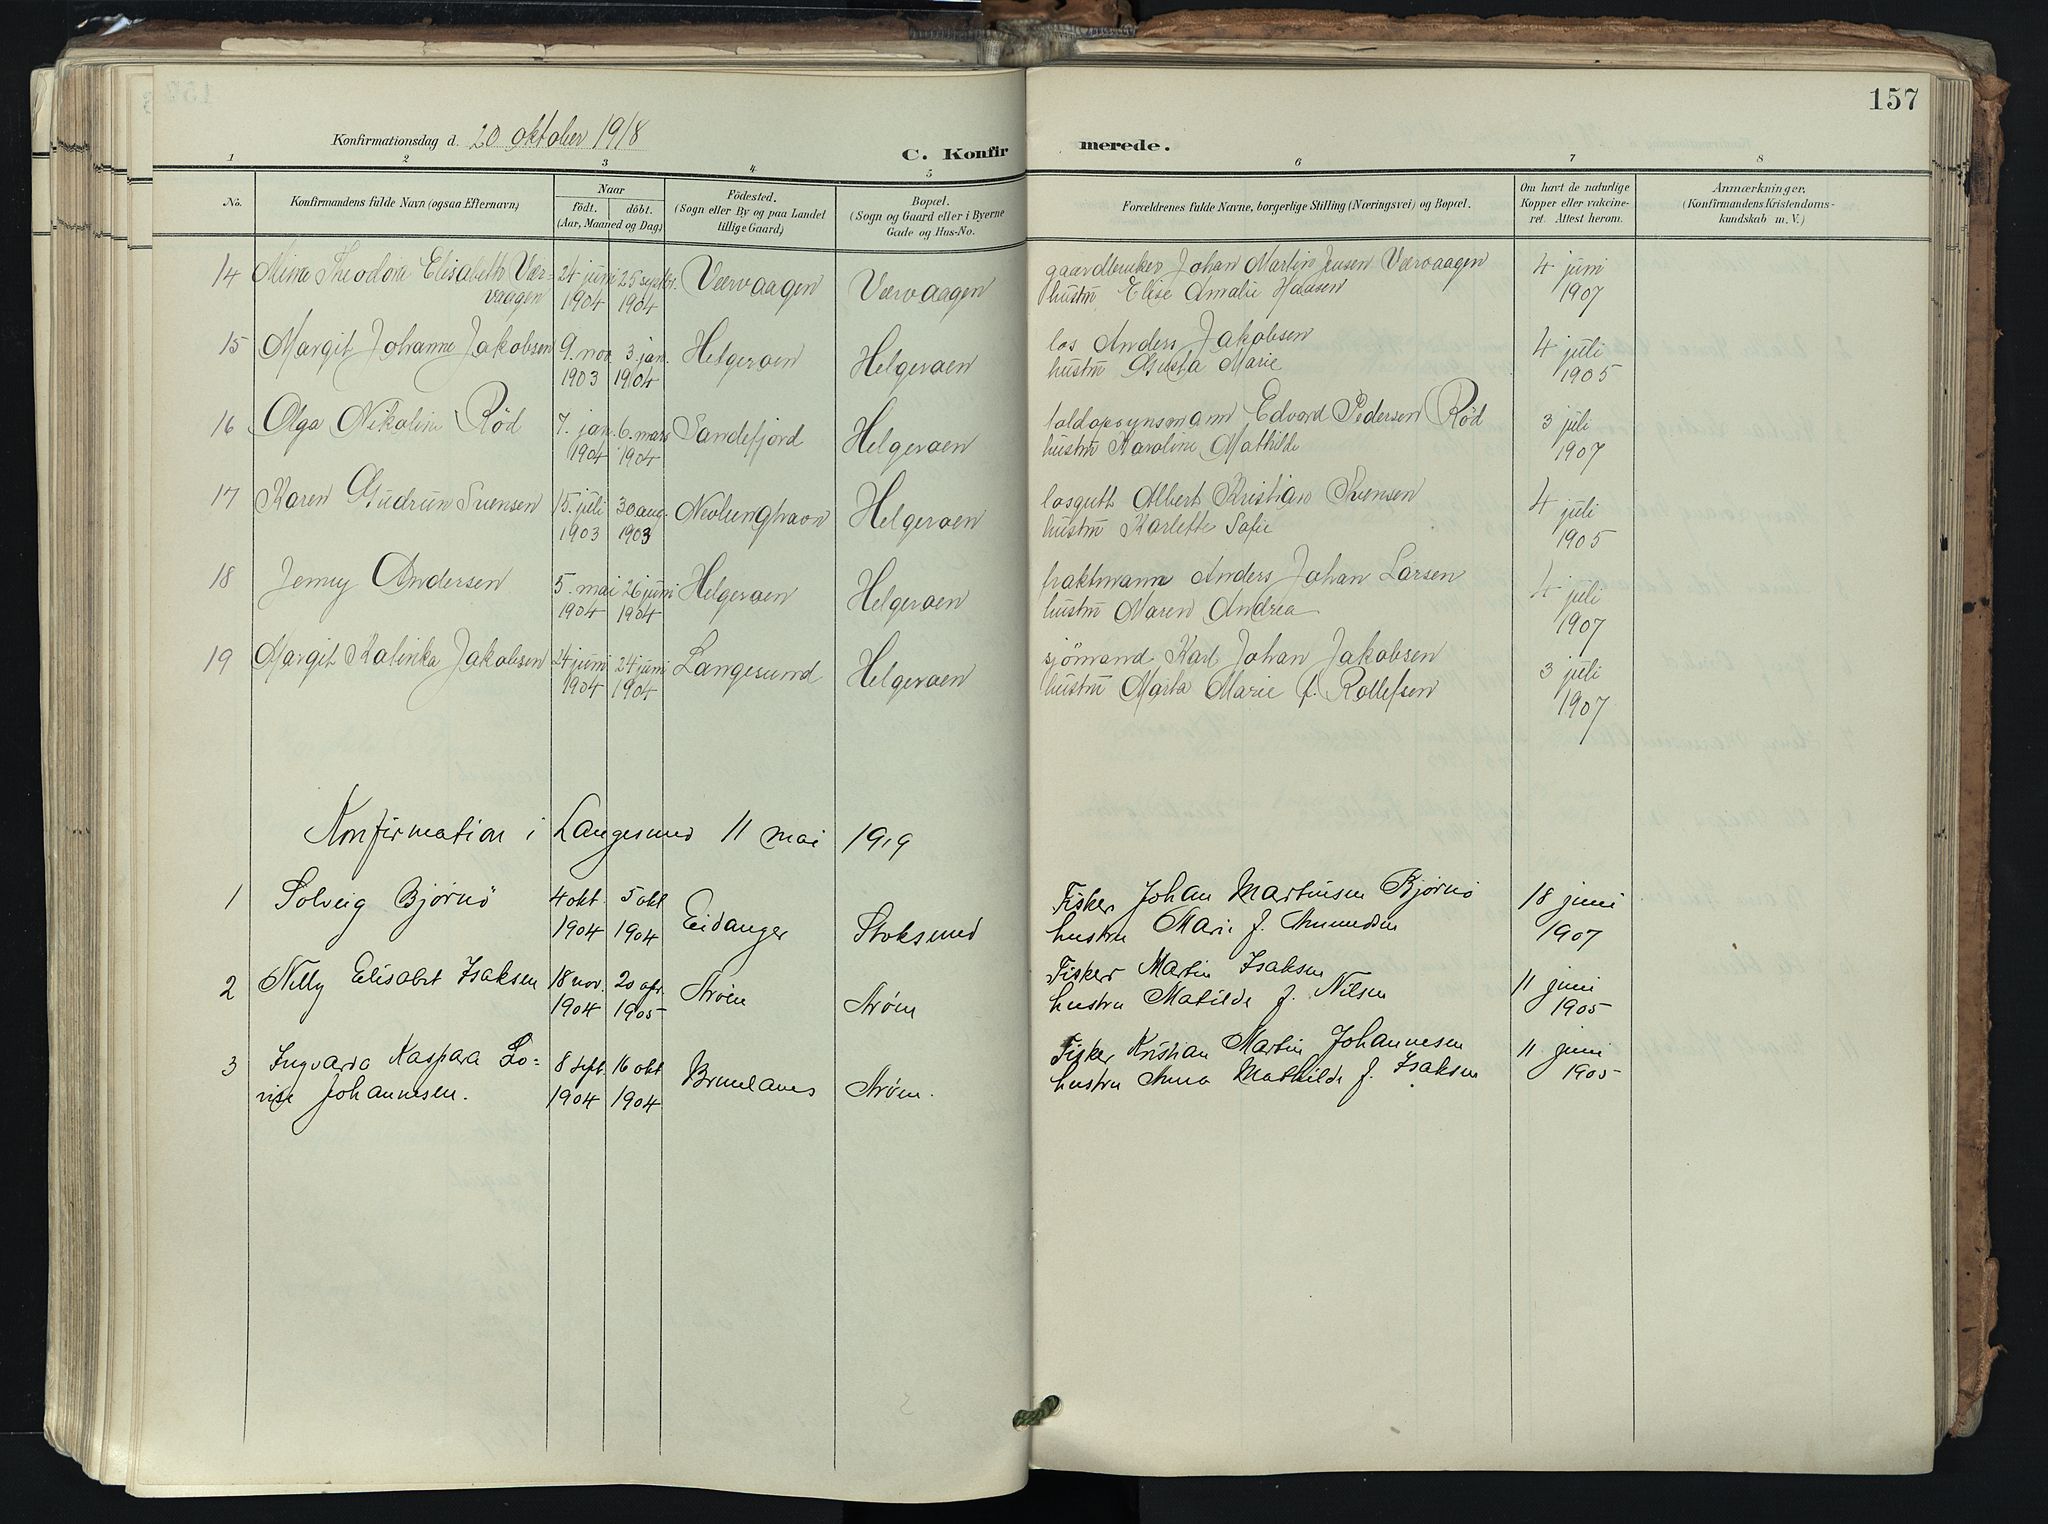 157
Konfirmationsdag d. 20 oktober 1918
C. Konfirmerede.
1 2 3 4 5 6 7 8
No.
Konfirmandens fulde Navn (ogsaa Efternavn)
Naar
födt. döbt.
(Aar, Maaned og Dag)
Födested.
(Sogn eller By og paa Landet
tillige Gaard)
Bopæl.
(Sogn og Gaard eller i Byerne
Gade og Hus-No.
Forældrenes fulde Navne, borgerlige Stilling (Næringsvei) og Bopæl.
Om havt de naturlige
Kopper eller vakcine-
ret. Attest herom.
Anmærkninger.
(Konfirmandens Kristendoms-
kundskab m. V.)
14 Mina Theodora Elisabeth Vær- 24 juni 25 septbr. Værvaagen Værvaagen gaardbruker Johan Martin Jensen Værvaagen 4 juni
vaagen 1904 1904 hustru Elise Amalie Hansen 1907
15 Margit Johanne Jakobsen 9. nov 3. jan. Helgeraen Helgeraen los Anders Jakobsen 4 juli
1903 1904 hustru Gusta Marie 1905
16 Olga Nikoline Röd 7. jan. 6. mars Sandefjord Helgeraen toldopsynsmann Edvard Pedersen Röd 3 juli
1904 1904 hustru Karoline Mathilde 1907
17 Karen Gudrun Svensen 15. juli 30 aug. Nevlunghavn Helgeraen losgutt Albert Kristian Svensen 4 juli
1903 1903 hustru Karlette Sofie 1905
18 Jenny Andersen 5. mai 26 juni Helgeraen Helgeraen fraktmann Anders Johan Larsen 4 juli
1904 1904 hustru Maren Andrea 1907
19 Margit Kalinka Jakobsen 24 juni 24 juni Langesund Helgeraen sjömand Karl Johan Jakobsen 3 juli
1904 1904 hustru Marta Marie f. Rollefsen 1907
Konfirmation i Langesund 11 mai 1919
1 Solveig Bjørnö 4 okt. 5 okt Eidanger Stoksund Fisker Johan Martinsen Bjørnö 18 juni
1904 1904 hustru Marie f. Amundsen 1907
2 Nilly Elisabet Isaksen 18 nov. 20 apr. Strøm Strøm Fisker Martin Isaksen 11 juni
1904 1905 hustru Matilde f. Nilsen 1905
3 Ingvarda Kaspara Lo- 8 sept. 16 okt Brunlanes Strøm. Fisker Kristian Martin Johannesen 11 juni
vise Johannesen. 1904 1904 hustru Anna Mathilde f. Isaksen 1905